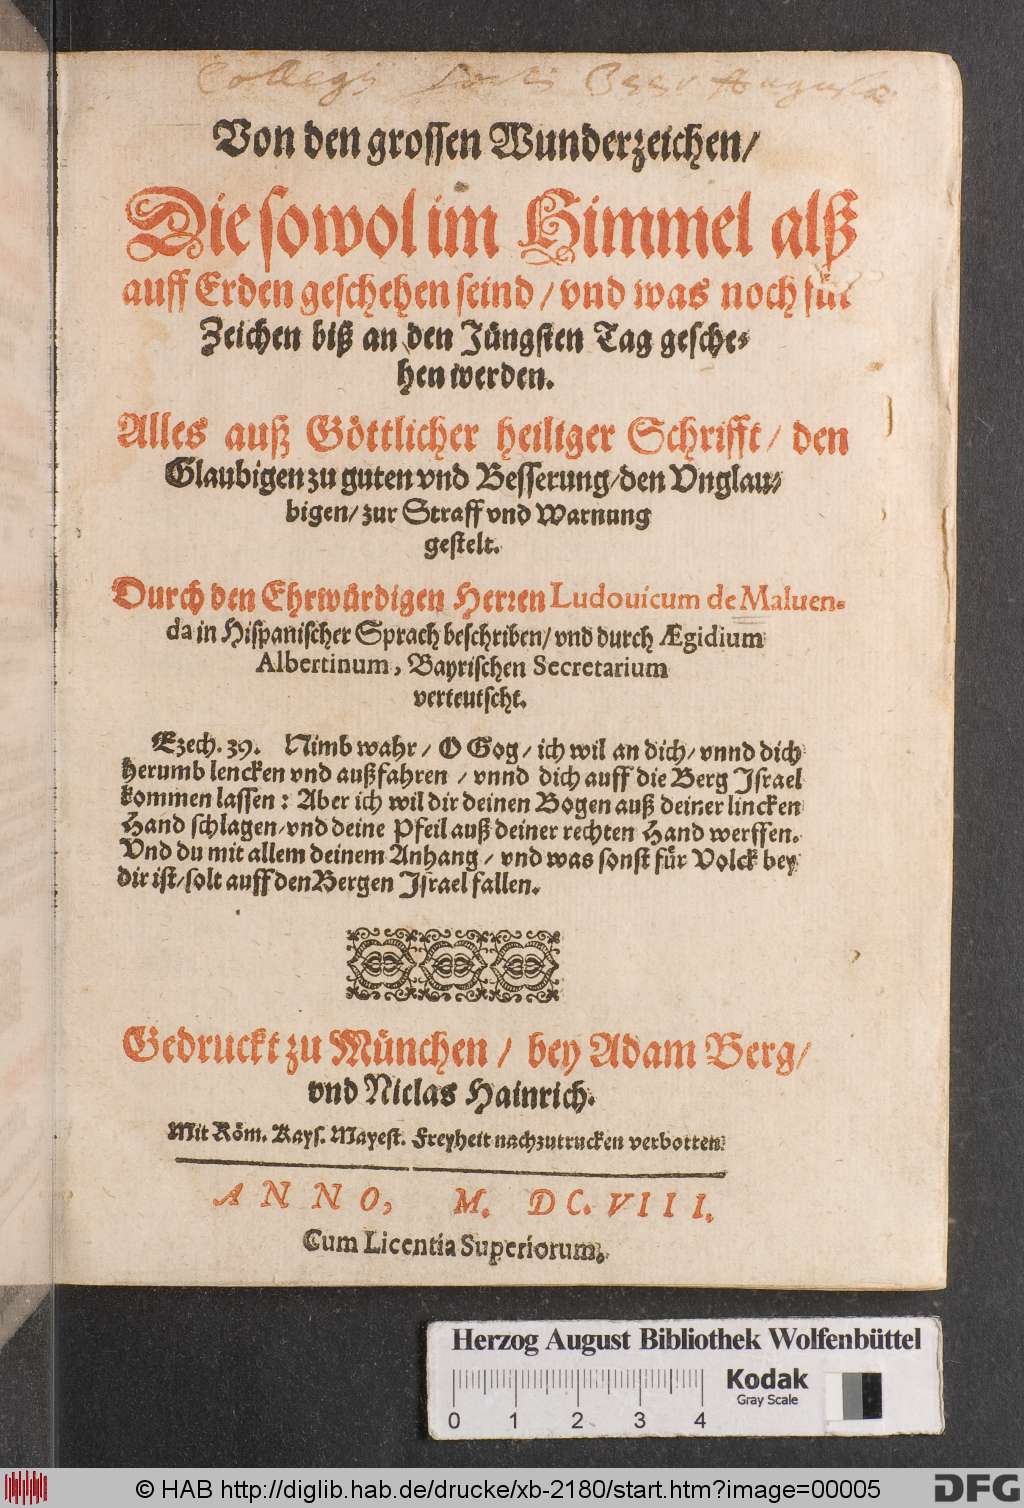 Collegij
Von den grossen Wunderzeichen/
Die sowol im Himmel alß
auff Erden geschehen seind/ vnd was noch für
Zeichen biß an den Jüngsten Tag gesche-
hen werden.
Alles auß Göttlicher heiliger Schrifft/ den
Glaubigen zu guten vnd Besserung/ den Vnglau-
bigen/ zur Straff vnd Warnung
gestelt.
Durch den Ehrwürdigen Herren Ludouicum de Maluen-
da in Hispanischer Sprach beschriben/ vnd durch Ægidium
Albertinum, Bayrischen Secretarium
verteutscht.
Ezech. 39. Nimb wahr/ O Gog/ ich wil an dich/ vnnd dich
herumb lencken vnd außfahren/ vnnd dich auff die Berg Israel
kommen lassen: Aber ich wil dir deinen Bogen auß deiner lincken
Hand schlagen/ vnd deine Pfeil auß deiner rechten Hand werffen.
Vnd du mit allem deinem Anhang/ vnd was sonst für Volck bey
dir ist/ solt auff den Bergen Israel fallen.
Gedruckt zu München/ bey Adam Berg/
vnd Niclas Hainrich.
Mit Röm. Kays. Mayest. Freyheit nachzutrucken verbotten.
ANNO, M. DC. VIII.
Cum Licentia Superiorum.
Herzog August Bibliothek Wolfenbüttel
Kodak
Gray Scale
0 1 2 3 4
© HAB http://diglib.hab.de/drucke/xb-2180/start.htm?image=00005
DFG